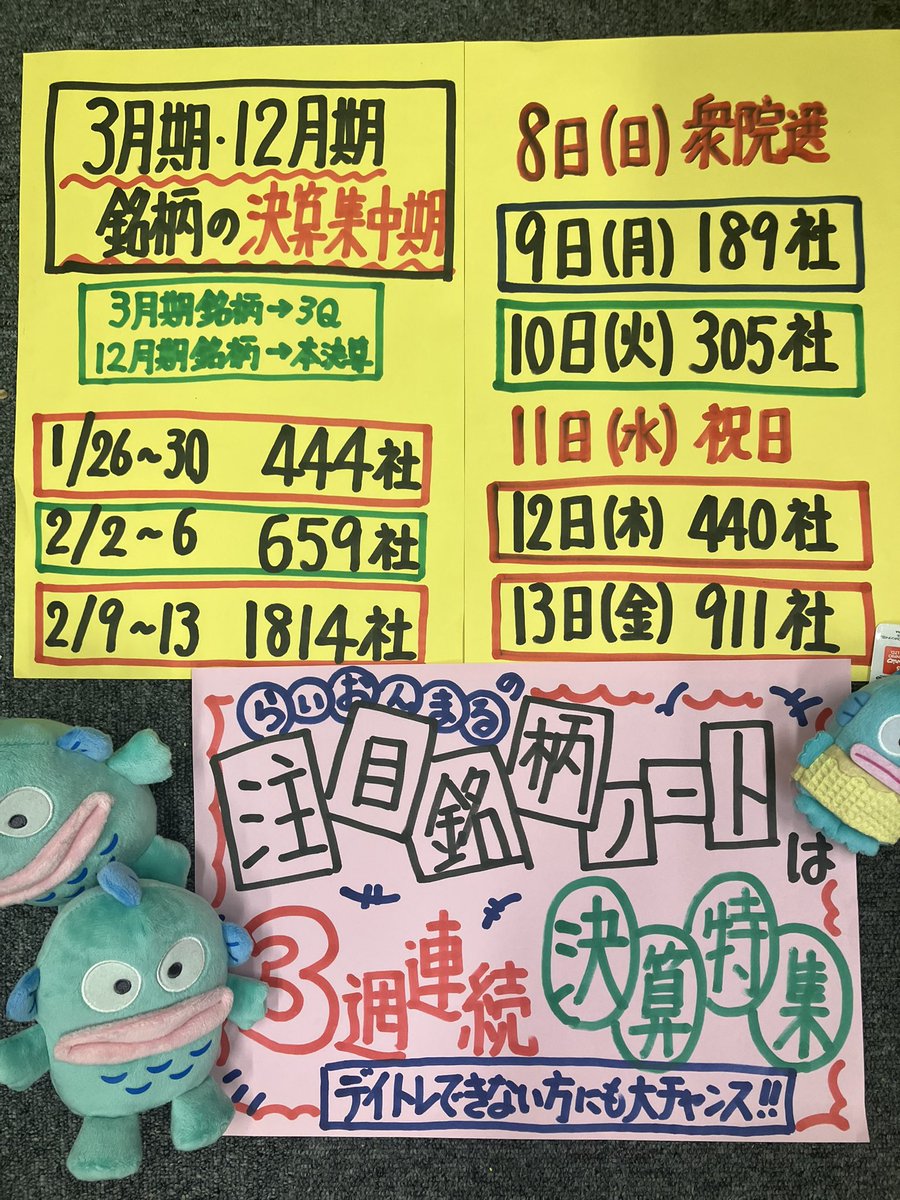 3月期・12月期
銘柄の決算集中期
3月期銘柄→3Q
12月期銘柄→本決算
1/26~30 444社
2/2~6 659社
2/9~13 1814社
8日(日)衆院選
9日(月)189社
10日(火)305社
11日(水)祝日
12日(木)440社
13日(金)911社
らいおんまるの
注目銘柄ノートは
3週連続
決算特集
デイトレできない方にも大チャンス!!